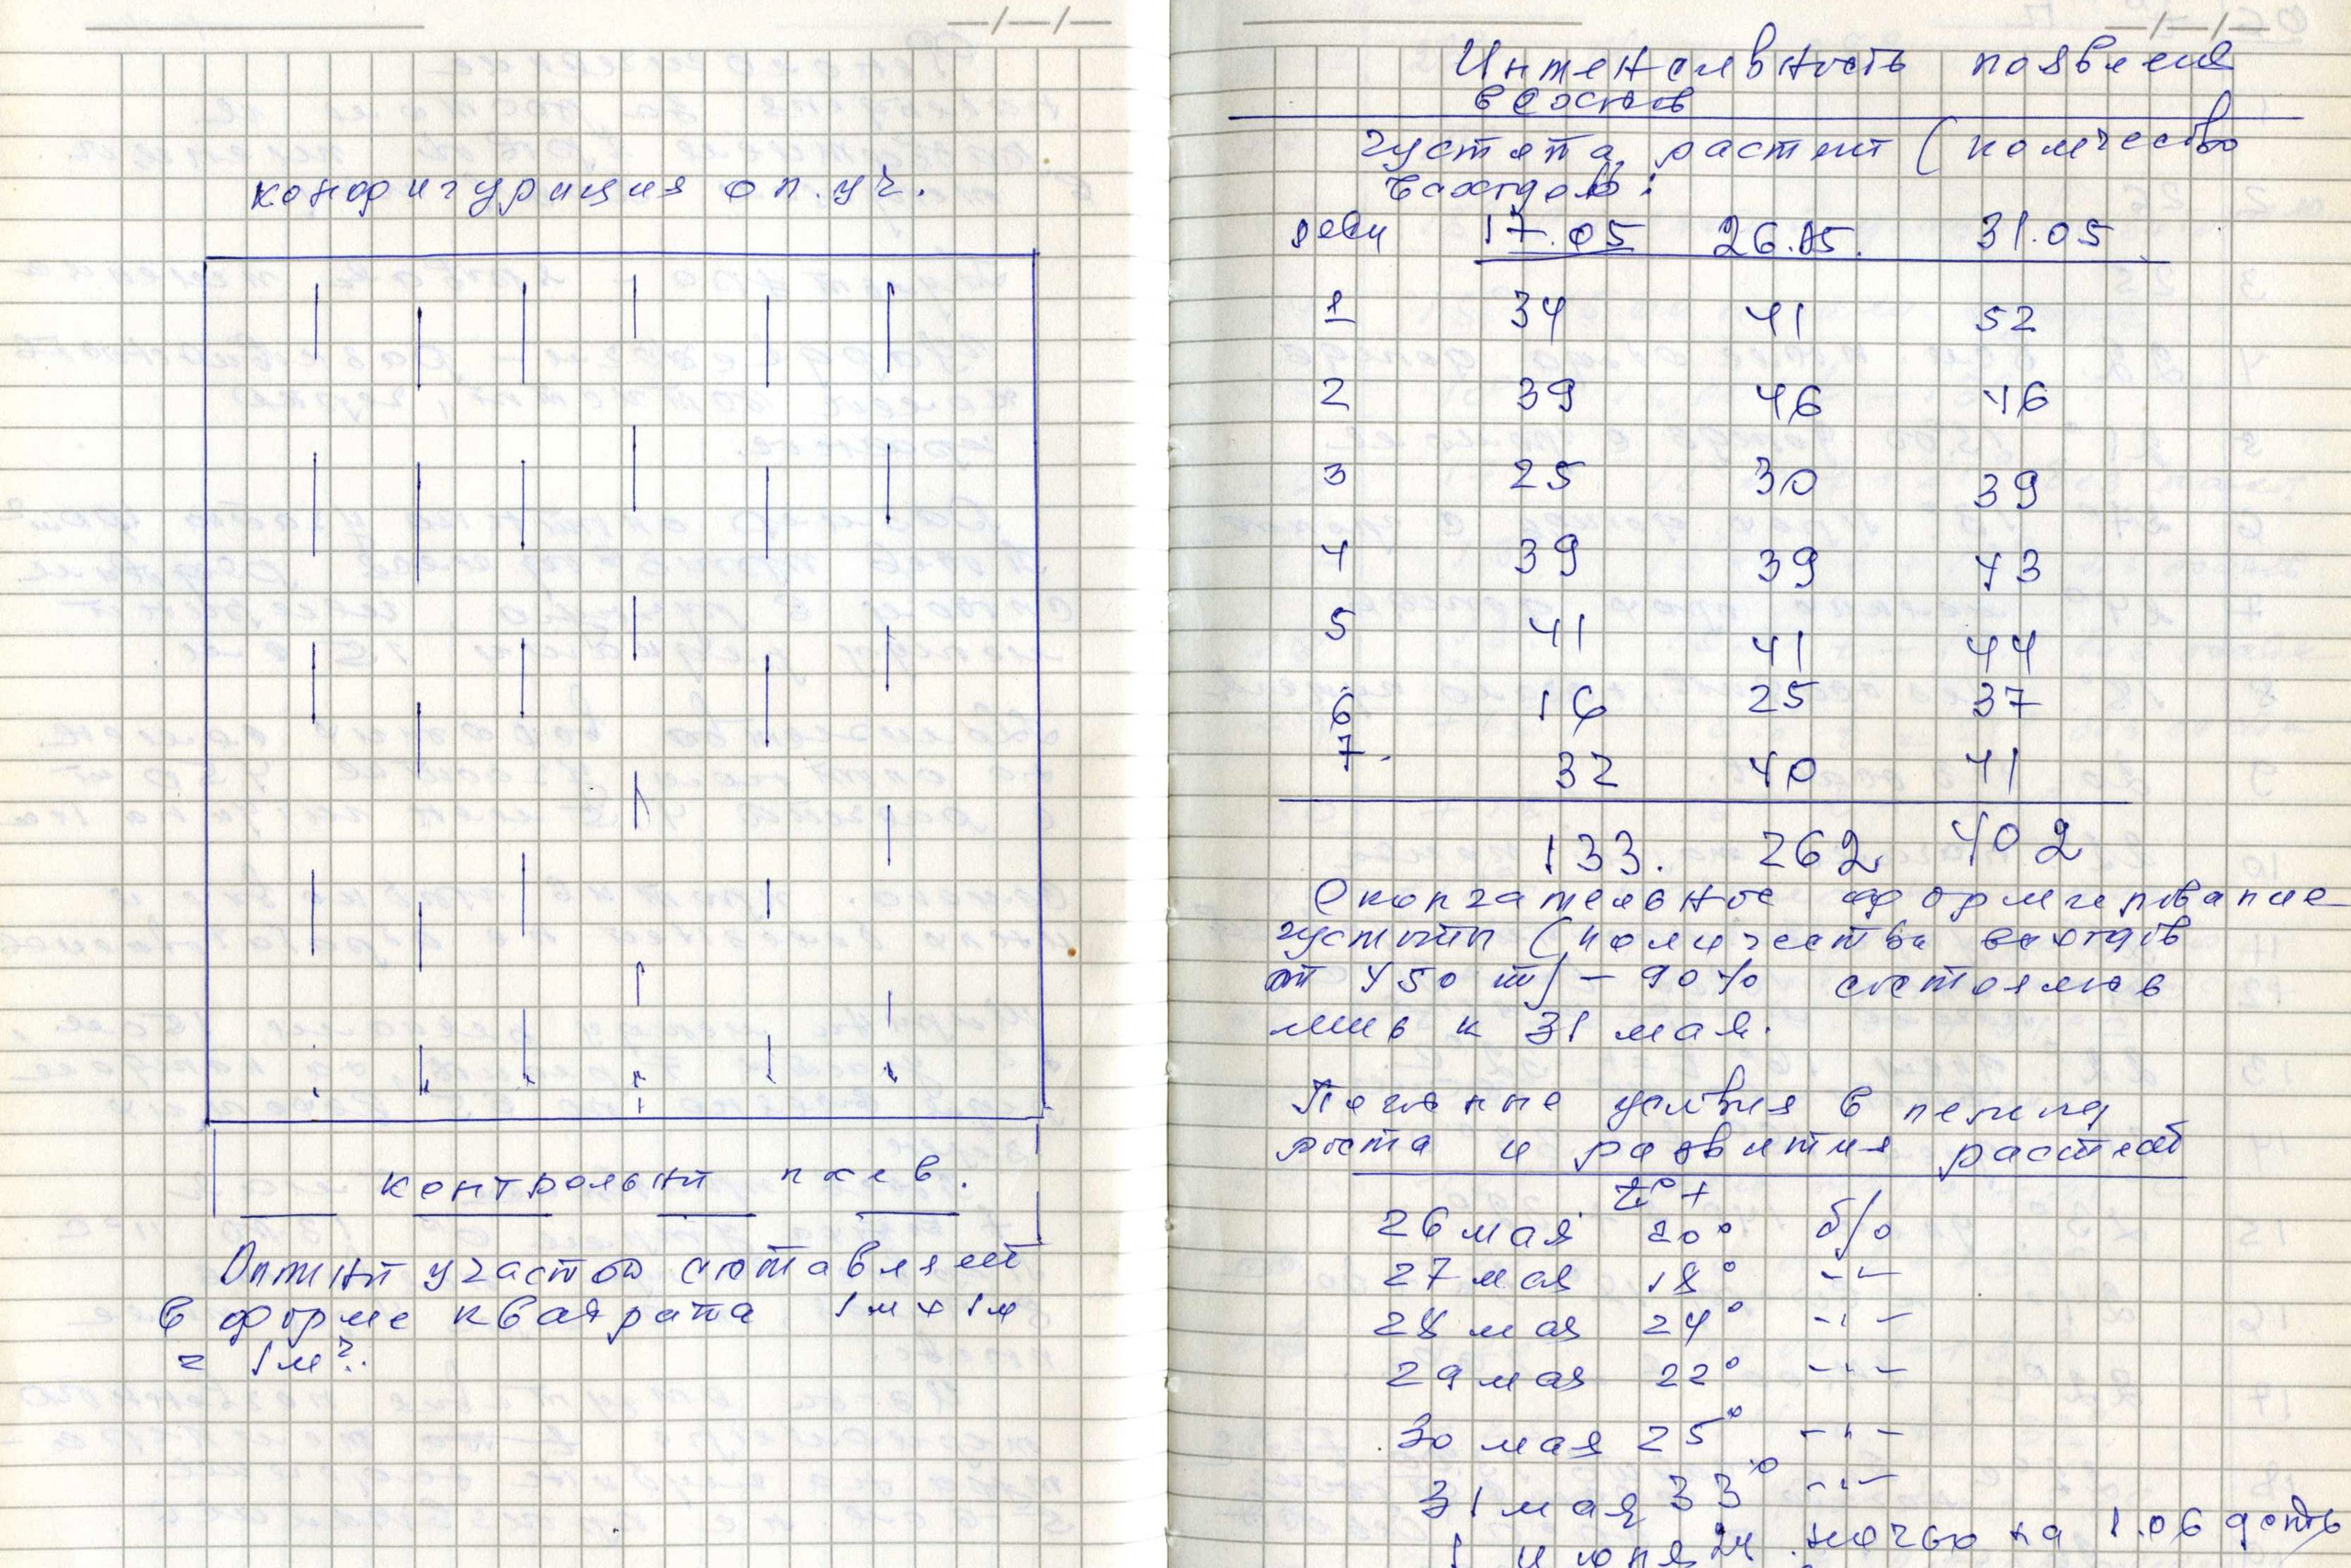 конфигурация оп.уч.
контрольн посев.
Опытн участок составляет
в форме квадрата 1м х 1м
= 1м².
Интенсивность появления
всходов
густота растит (количество
всходов:
17.05 26.05. 31.05
1 34 41 52
2 39 46 46
3 25 30 39
4 39 39 43
5 41 41 44
6 16 25 37
7. 32 40 41
133. 262 402
Окончательное формирование
густоты (количества всходов
от 450 шт) - 90% состоялось
лишь к 31 мая.
Погодные условия в период
роста и развития растений
t°+
26 мая 20° б/о
27 мая 18° -"-
28 мая 24° -"-
29 мая 22° -"-
30 мая 25° -"-
31 мая 33° -"-
1 июня 24 ночью на 1.06 дождь